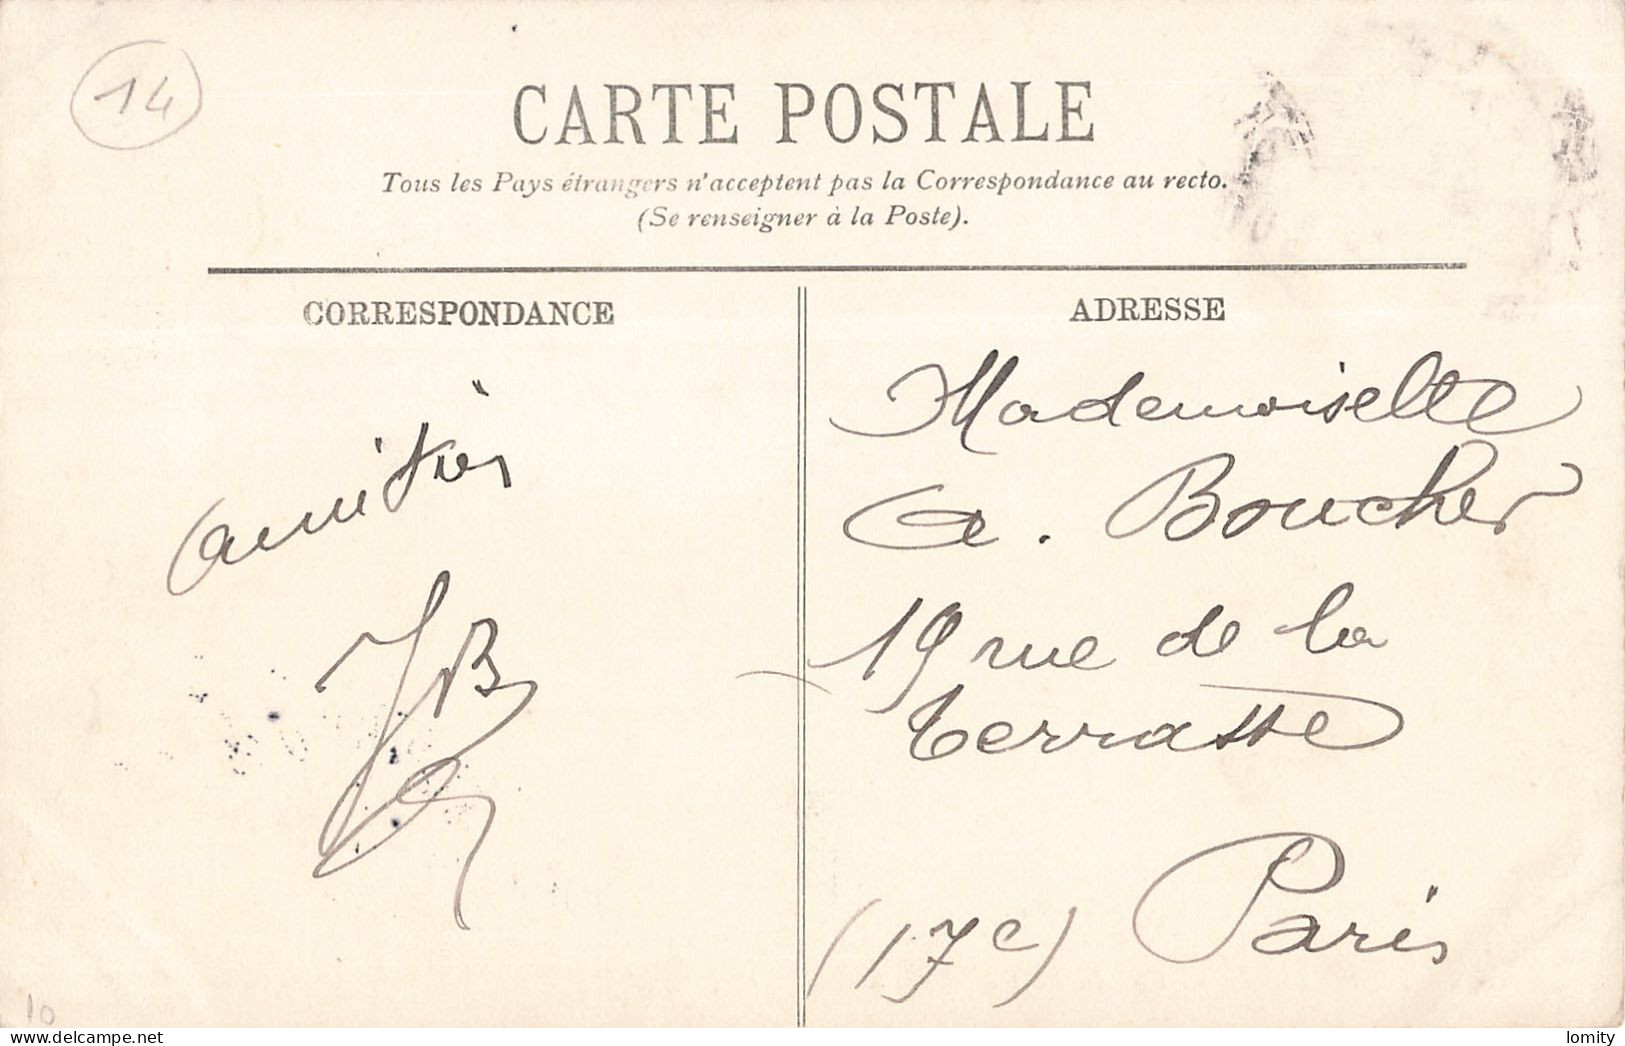 14
CARTE POSTALE
Tous les Pays étrangers n'acceptent pas la Correspondance au recto.
(Se renseigner à la Poste).
CORRESPONDANCE
amitiés
JB
ADRESSE
Mademoiselle
A. Boucher
19 rue de la
Terrasse
(17e) Paris
10
delcampe.net
lomity